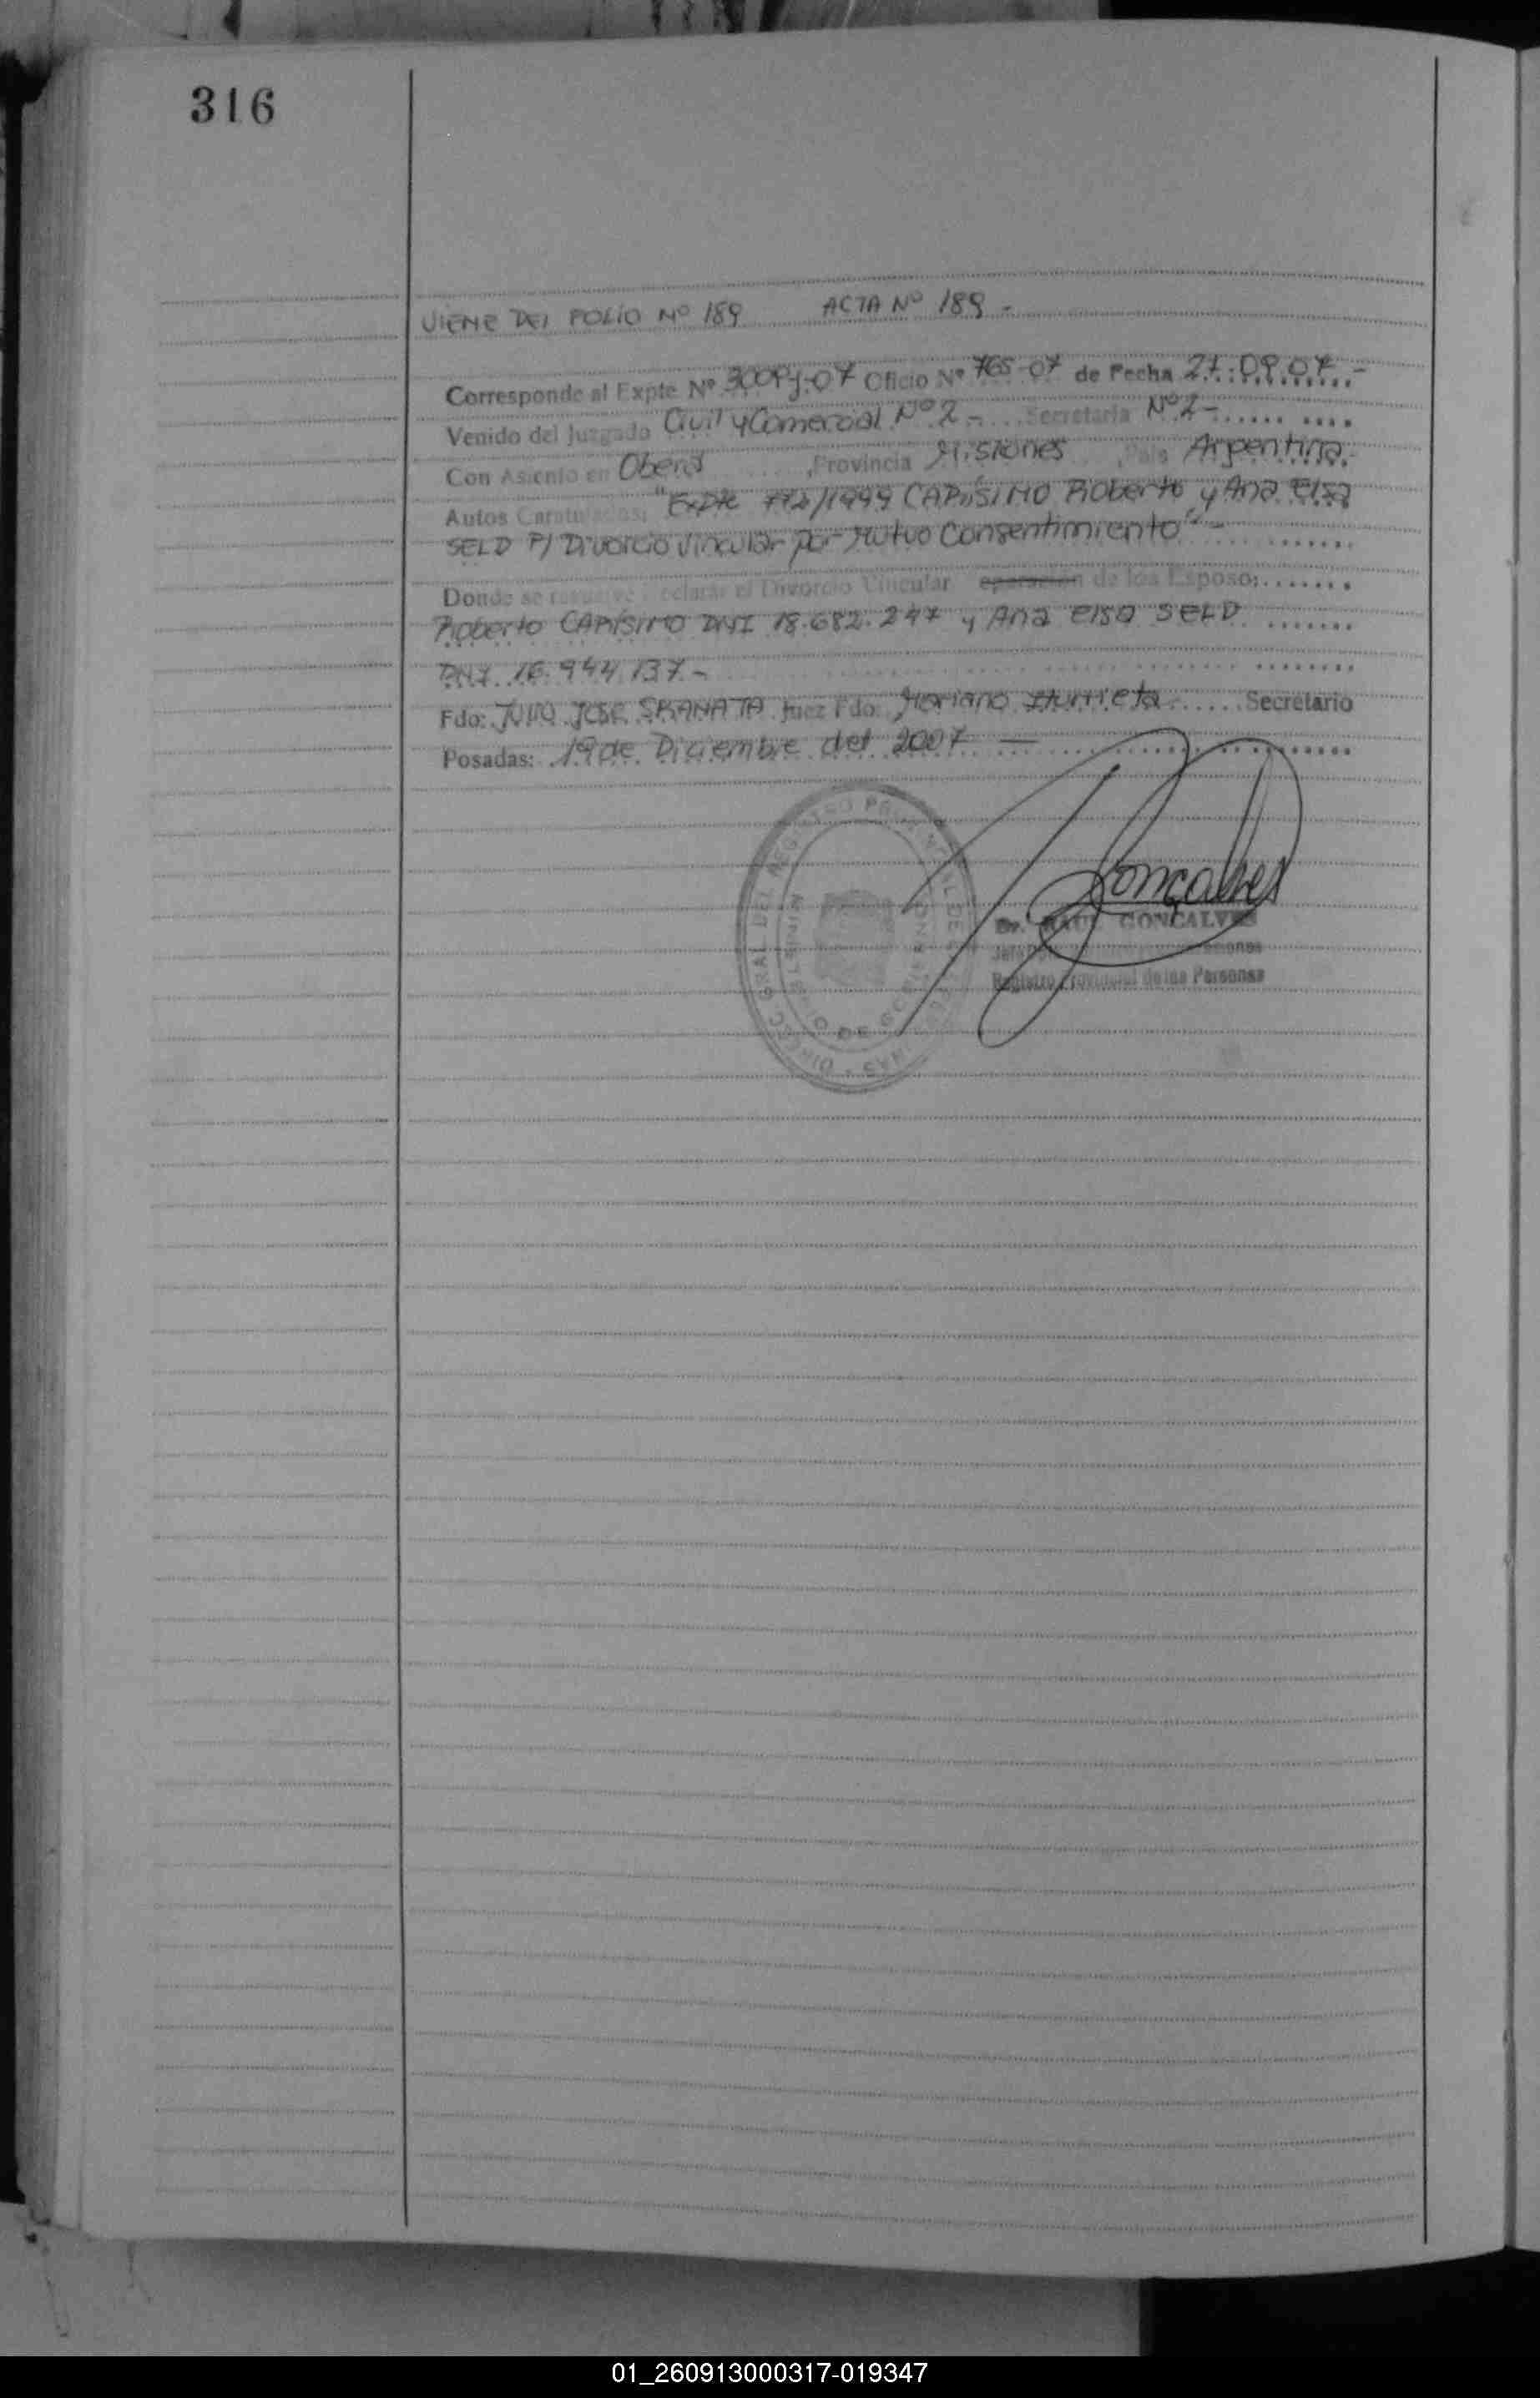 316
VIENE DEL FOLIO Nº 189 ACTA Nº 189 -
Corresponde al Expte Nº 3009-J-07 Oficio Nº 765-07 de Fecha 27.09.07.-
Venido del Juzgado Civil y Comercial Nº 2 - Secretaria Nº 2-
Con Asiento en Oberá, Provincia Misiones, País Argentina.
Autos Caratulados: "Expte /1999 CARÍSIMO Roberto y Ana Elsa
SELD P/ Divorcio Vincular por Mutuo Consentimiento" -
Donde se resuelve declarar el Divorcio Vincular de los Esposo:
Roberto CARÍSIMO DNI 18.682.247 y Ana Elsa SELD
DNI 16.944.137 -
Fdo: JULIO JOSE Juez Fdo: Mariano Iturrieta Secretario
Posadas: 19 de Diciembre del 2007 —
DIRECC GRAL DEL REGISTRO PROVINCIAL DE LAS PERSONAS
MINISTERIO DE GOBIERNO
Gonçalves
Dr. RAUL GONCALVES
Registro Provincial de las Personas
01_260913000317-019347